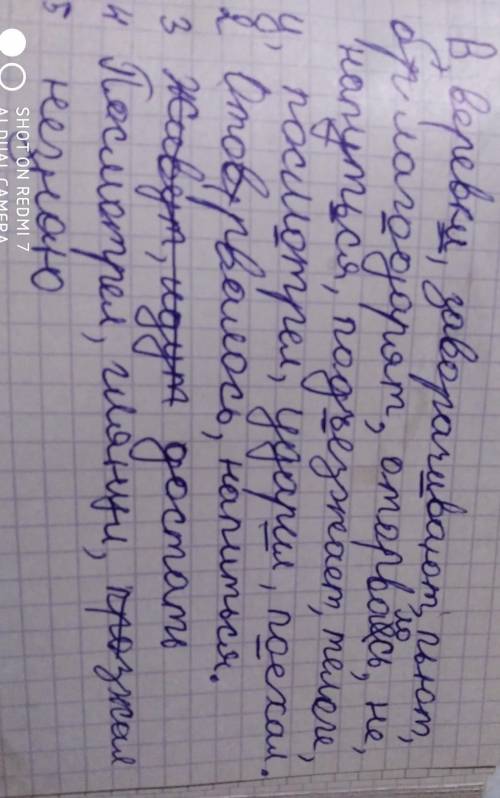 В веревки, заворачивают, пьют,
благодарят, оторвалось, не,
напиться, подъезжает, телеге,
посмотрел, ударил, поехал.
2 Оторвалось, напиться.
3 Живут, идут достать
4 Посмотрел, глянци,
5 незнаю
SHOT ON REDMI 7
AI DUAL CAMERA